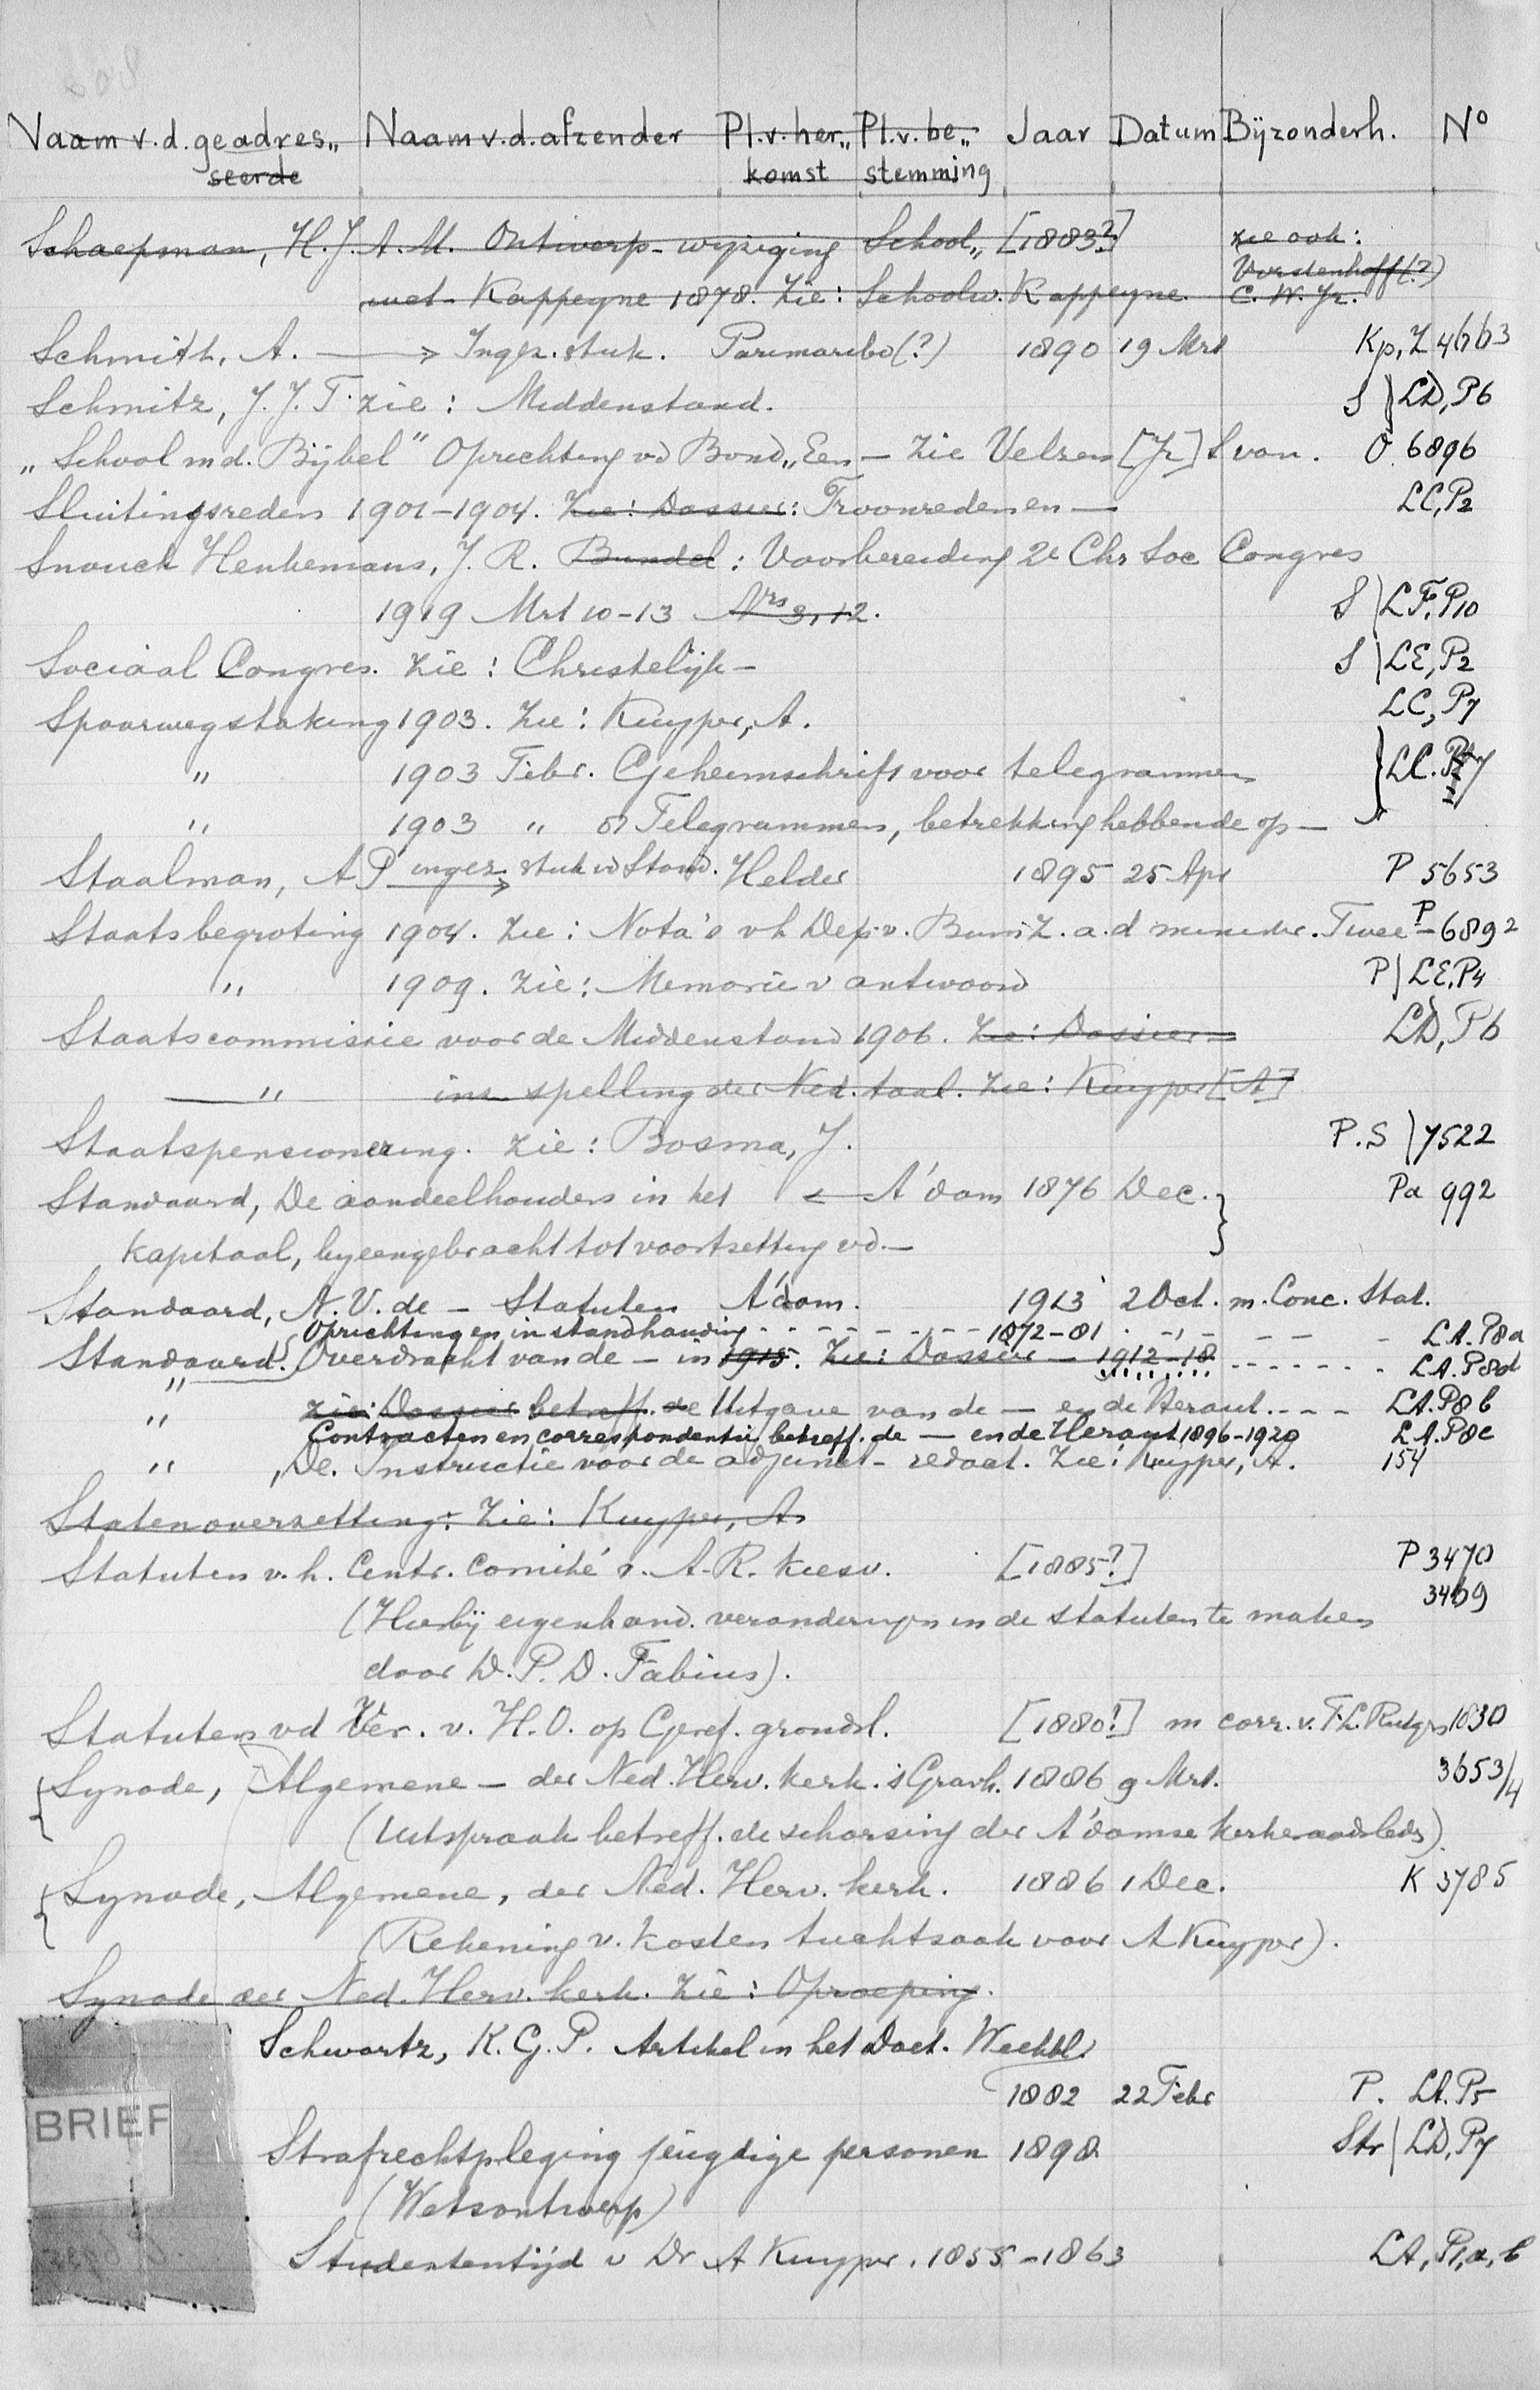 Naam v. d. geadres„ Naam v. d. afzender Pl. v. her„ Pl. v. be„ Jaar Datum Bijzonderh. No
seerde komst stemming
Schaepman, H. J. A. M. Ontwerp- wijziging School„ [1883?] zie ook:
Vorstenhoff(?)
wet- Kappeyne 1878. Zie: Schoolw. Kappeyne. C. W. Jr.
Schmith, A. → Ingez. stuk. Parimaribo(?) 1890 19 Mrt Kp, Z 4663
Schmitz, J. J. T. zie: Middenstand. S } LD, P6
„School m d. Bijbel" Oprichting vd Bond „Een — Zie Velzen [Jr] S von. O. 6896
Sluitingsreden 1901-1904. Zie: Dossier: Troonreden en — LC, P2
Snouck Henkemans, J. R. Bundel: Voorbereiding 2e Chr Soc Congres
1919 Mrt 10-13 Nrs 3, 12. S } LF, P10
Sociaal Congres. Zie: Christelijk — S } LE, P2
Spoorwegstaking 1903. Zie: Kuyper, A. LC, P7
" 1903 Febr. Geheimschrift voor telegrammen } LC. P7
" 1903 " Telegrammen, betrekking hebbende op —
Staalman, A P ingez. stuk vd Stand. → Helder 1895 25 Apr P 5653
Staatsbegroting 1904. Zie: Nota's v h Dep. v. Binn Z. a. d minister. Twee — P 6892
" 1909. Zie: Memorie v antwoord P } LE, P4
Staatscommissie voor de Middenstand 1906. Zie: Dossier = LD, P6
— " inz spelling der Ned. taal. Zie: Kuyper [A]
Staatspensionering. Zie: Bosma, J. P. S } 7522
Standaard, De aandeelhouders in het ← A'dam 1876 Dec. } Pa 992
Kapitaal, byeengebracht tot voortzetting vd. —
Standaard, N. V. de — Statuten A'dam. 1913 2 Oct. m. Conc. Stat.
Oprichting en instandhouding - - - - - - - 1872-81 - - - - - LA. P8a
Standaard. Overdracht van de — in 1915. Zie: Dossier — 1912-18 - - - - - - LA. P8d
" zie: Dossier betreff. de Uitgave van de — en de Heraut. - - - LA. P8b
" Contracten en correspondentie betreff. de — en de Heraut 1896-1920 LA. P8c
" , De. Instructie voor de adjunct- redact. Zie: Kuyper, A. 154
Statenoverzetting: Zie: Kuyper, A.
Statuten v. h. Centr. Comité v. A.-R. kiesv. [1885?] P 3470
3469
(Hierbij eigenhand. veranderingen in de statuten te maken
door D. P. D. Fabius).
Statuten vd Ver. v. H. O. op Geref. grondsl. [1880?] in corr. v. F. L. Rutgers 1030
{ Synode, Algemene — der Ned. Herv. kerk. 's Gravh. 1886 9 Mrt. 3653/4
(Uitspraak betreff. de schorsing der A'damse kerkeraadsleden).
{ Synode, Algemene, der Ned. Herv. kerk. 1886 1 Dec. K 3785
(Rekening v. kosten tuchtzaak voor A Kuyper).
Synode der Ned. Herv. kerk. Zie: Oproeping.
Schwartz, K. G. P. Artikel in het Dact. Weekbl.
1882 22 Febr P. LA. P5
BRIEF
Strafrechtpleging jeugdige personen 1898 Str } LD, P7
(Wetsontwerp)
Studententijd v Dr A Kuyper. 1855-1863 LA, P1, a, b